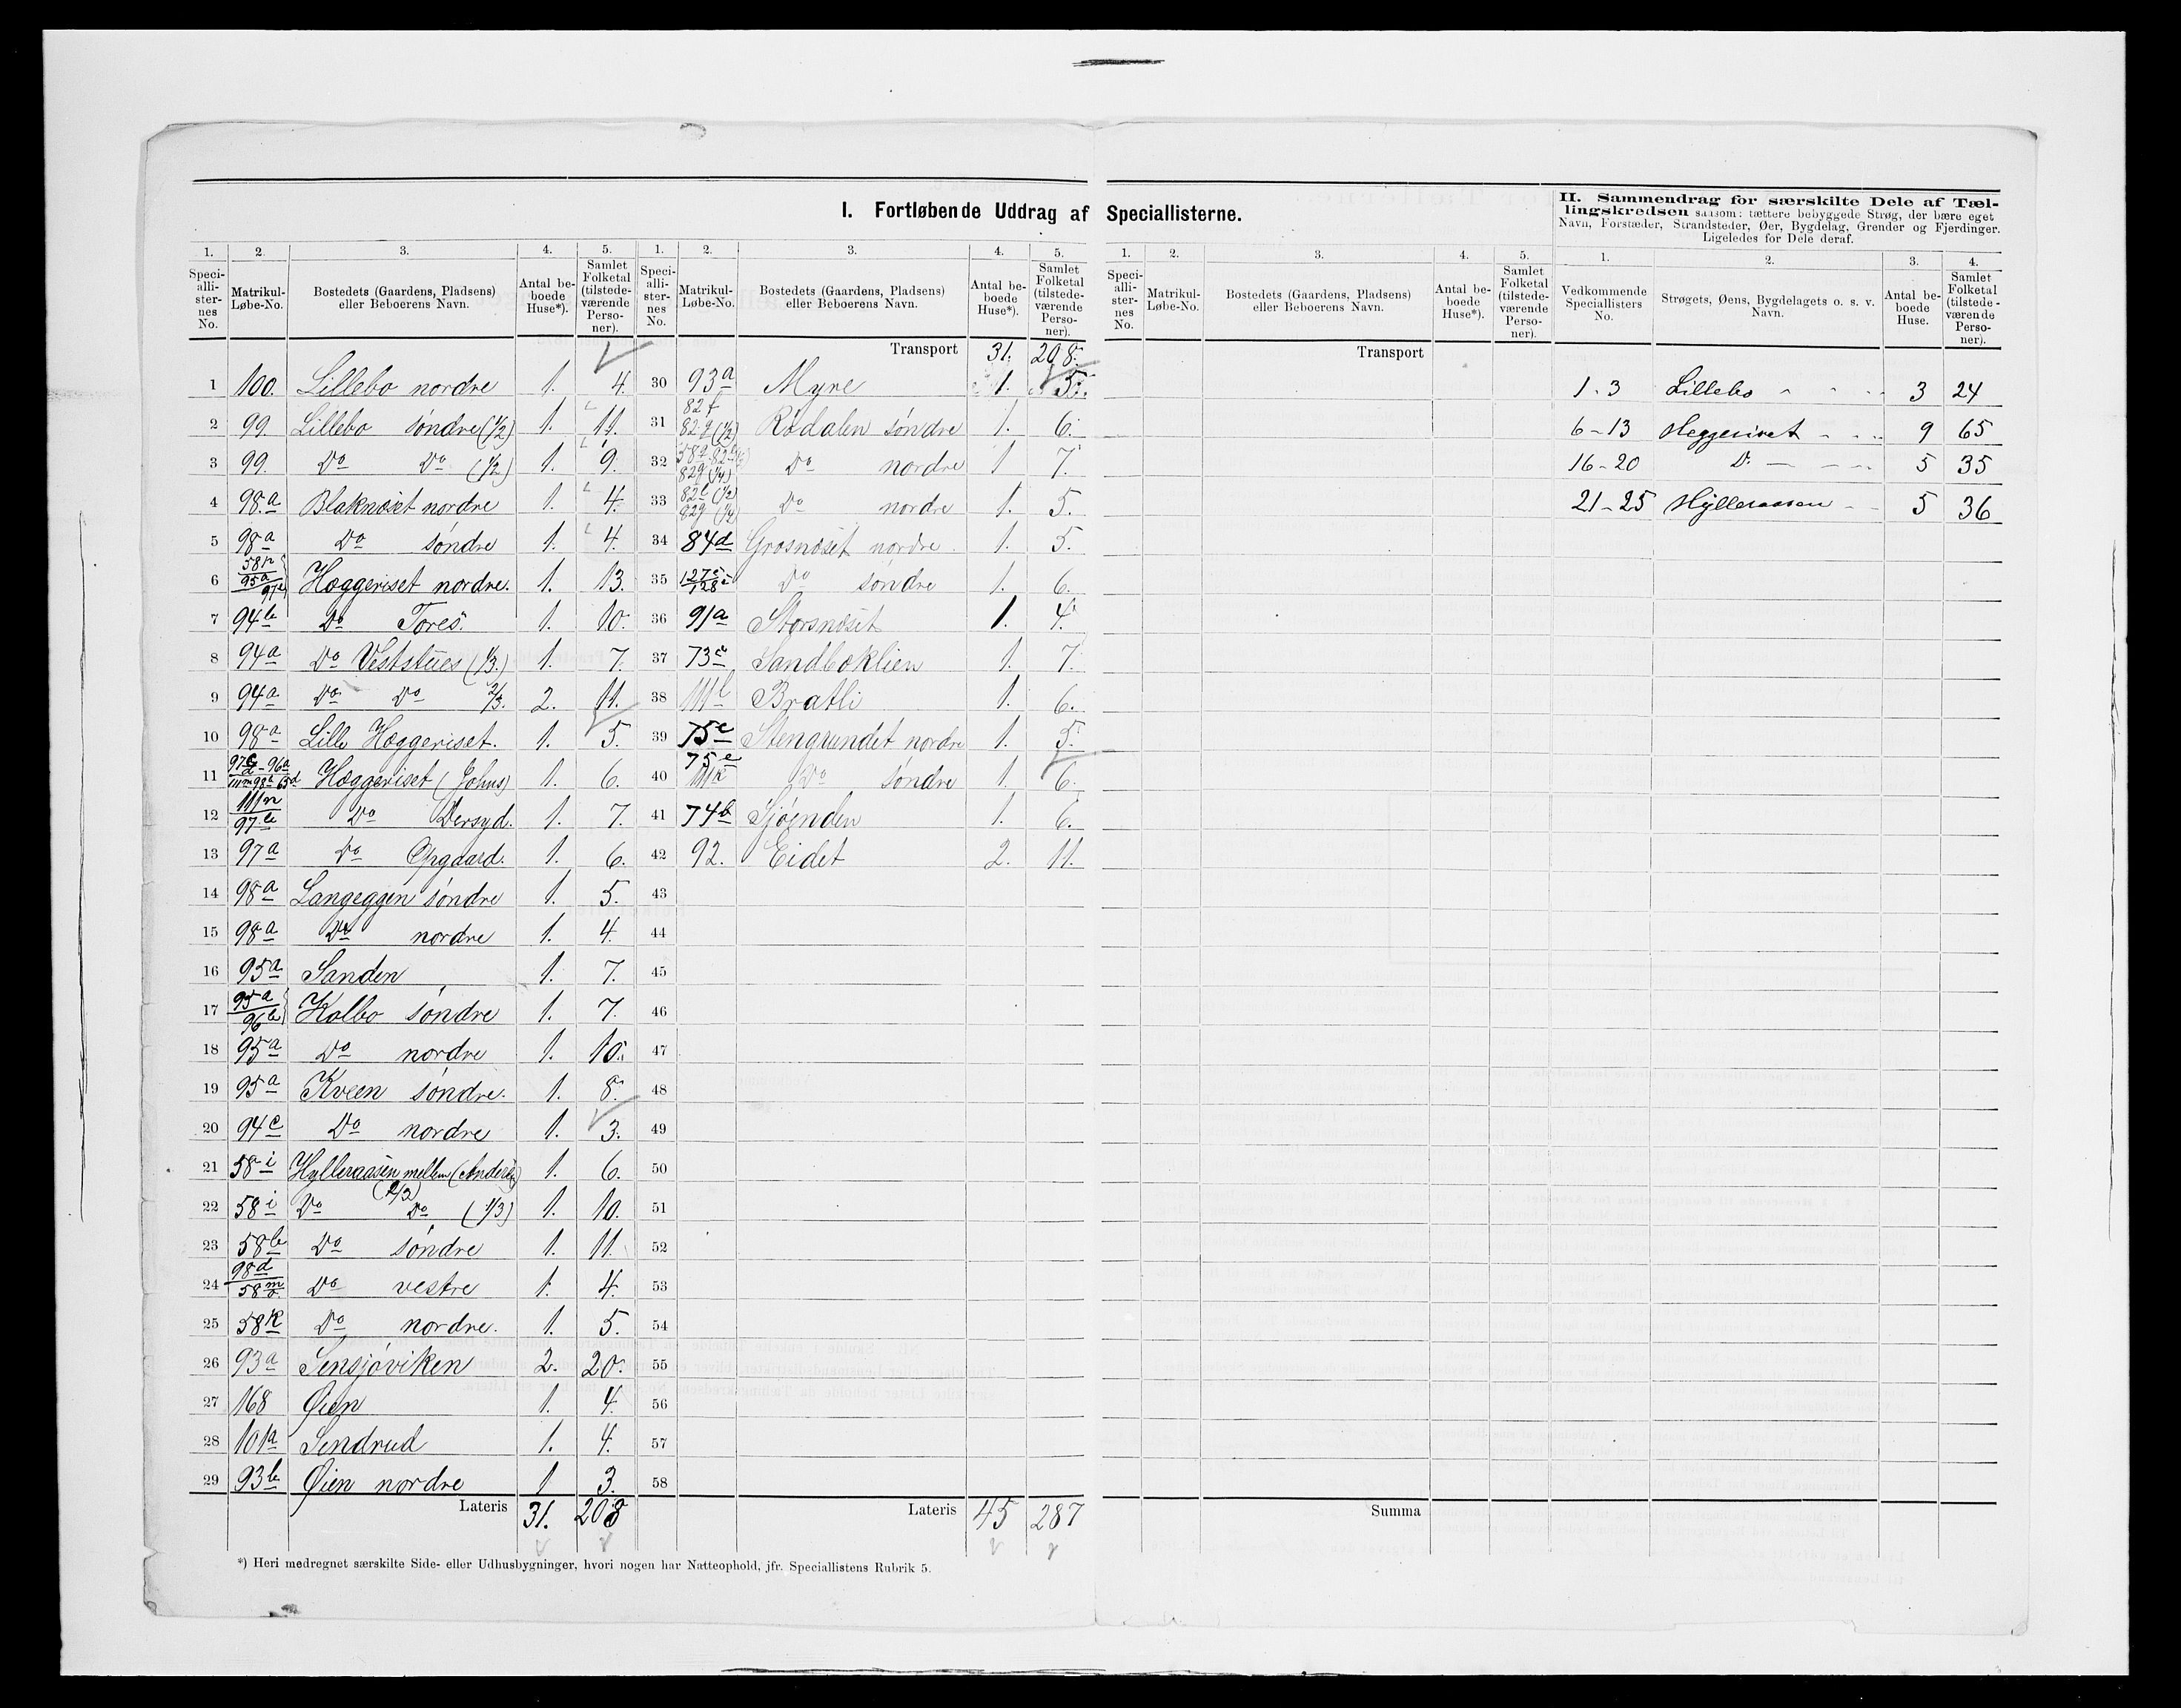 I. Fortløbende Uddrag af Speciallisterne.
II. Sammendrag for særskilte Dele af Tællingskredsen saasom: tættere bebyggede Strøg, der bære eget
Navn, Forstæder, Strandsteder, Øer, Bygdelag, Grender og Fjerdinger.
Ligeledes for Dele deraf.
1. 2. 3. 4. 5. 1. 2. 3. 4. 5. 1. 2. 3. 4. 5. 1. 2. 3. 4.
Speciallisternes No. Matrikul-Løbe-No. Bostedets (Gaardens, Pladsens) eller Beboerens Navn. Antal beboede Huse*). Samlet Folketal (tilstedeværende Personer).
Speciallisternes No. Matrikul-Løbe-No. Bostedets (Gaardens, Pladsens) eller Beboerens Navn. Antal beboede Huse*). Samlet Folketal (tilstedeværende Personer).
Speciallisternes No. Matrikul-Løbe-No. Bostedets (Gaardens, Pladsens) eller Beboerens Navn. Antal beboede Huse*). Samlet Folketal (tilstedeværende Personer).
Vedkommende Speciallisters No. Strøgets, Øens, Bygdelagets o. s. v. Navn. Antal beboede Huse. Samlet Folketal (tilstedeværende Personer).
1 100. Lillebo nordre 1. 4.
2 99. Lillebo søndre (1/2) 1. 11.
3 99. Do Do (1/2) 1. 9.
4 98.a Blaknæset nordre 1. 4.
5 98a Do søndre 1. 4.
6 58n 95a 97c Hæggeriset nordre. 1. 13.
7 94b Do Tores. 1. 10.
8 94a Do Veststues (1/3.) 1. 7.
9 94a Do Do 2/3. 2. 11.
10 98a Lille Hæggeriset. 1. 5.
11 Hæggeriset (Johns) 1. 6.
12 111n 97b Do 1. 7.
13 97a Do Opgaard. 1. 6.
14 98a Langeggen søndre 1. 5.
15 98a Do nordre 1. 4.
16 95a Sanden 1. 7.
17 95a 96b Kolbo søndre 1. 7.
18 95a Do nordre 1. 10.
19 95a Kveen søndre. 1. 8.
20 94c Do nordre 1. 3.
21 58i Hylleraasen mellem (Anders) 1. 6.
(2/3)
22 58i Do Do (1/3) 1. 10.
23 58b Do søndre 1. 11.
24 98d 58m Do vestre 1. 4.
25 58k Do nordre. 1. 5.
26 93a Sensjøviken 2. 20.
27 168 Øien 1. 4.
28 101a Sendrud 1. 4.
29 93b Øien nordre 1 3.
Lateris 31. 208
Transport 31. 208.
30 93a Myre 1. 5.
31 82f 82g (1/2) Rødalen søndre 1. 6.
32 82g (1/4) Do nordre 1 7.
33 82g (1/4) Do nordre 1. 5.
34 84d Grosnæset nordre. 1. 5.
35 127 128 Do søndre 1. 6.
36 91a Storsnæset 1. 4.
37 73c Sandbæklien 1. 7.
38 111l Bratli 1. 6.
39 75e Stengrundet nordre 1. 5.
40 75e 111k Do søndre 1. 6.
41 74b Sjøenden 1. 6.
42 92. Eidet 2. 11.
43
44
45
46
47
48
49
50
51
52
53
54
55
56
57
58
Lateris 45 287
Transport
Summa
1-3 Lillebo 3 24
6-13 Heggeriset 9 65
16-20 D. 5 35
21-25 Hylleraasen 5 36
*) Heri medregnet særskilte Side- eller Udhusbygninger, hvori nogen har Natteophold, jfr. Speciallistens Rubrik 5.